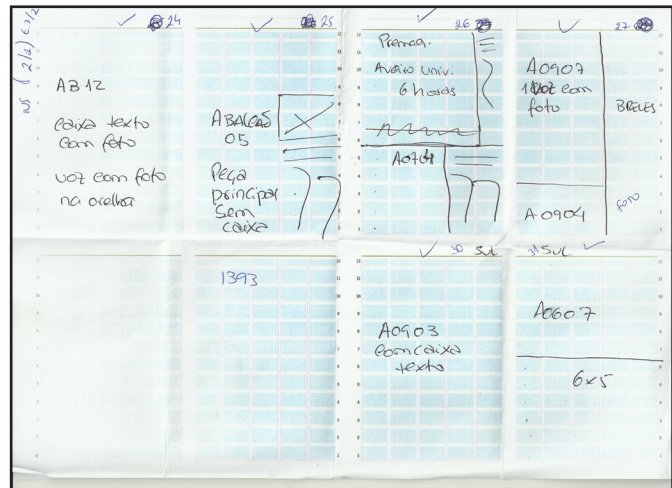 24
AB12
caixa texto
com foto
voz com foto
na orelha
25
ABALCAS
05
Peça
principal
sem
caixa
26
Premaq.
Aveiro univ.
6 horas
A0704
27
A0907
voz com
foto
BREVES
foto
A0904
1393
30 SUL
A0903
com caixa
texto
31 SUL
A0607
6x5